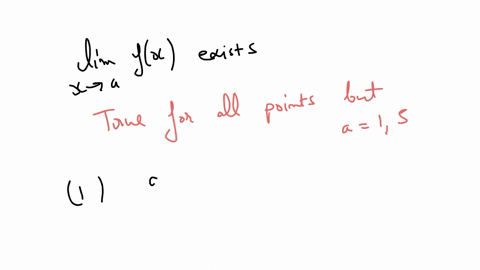 lim f(x) exists
x→a
True for all points but
a = 1, 5
(1) c